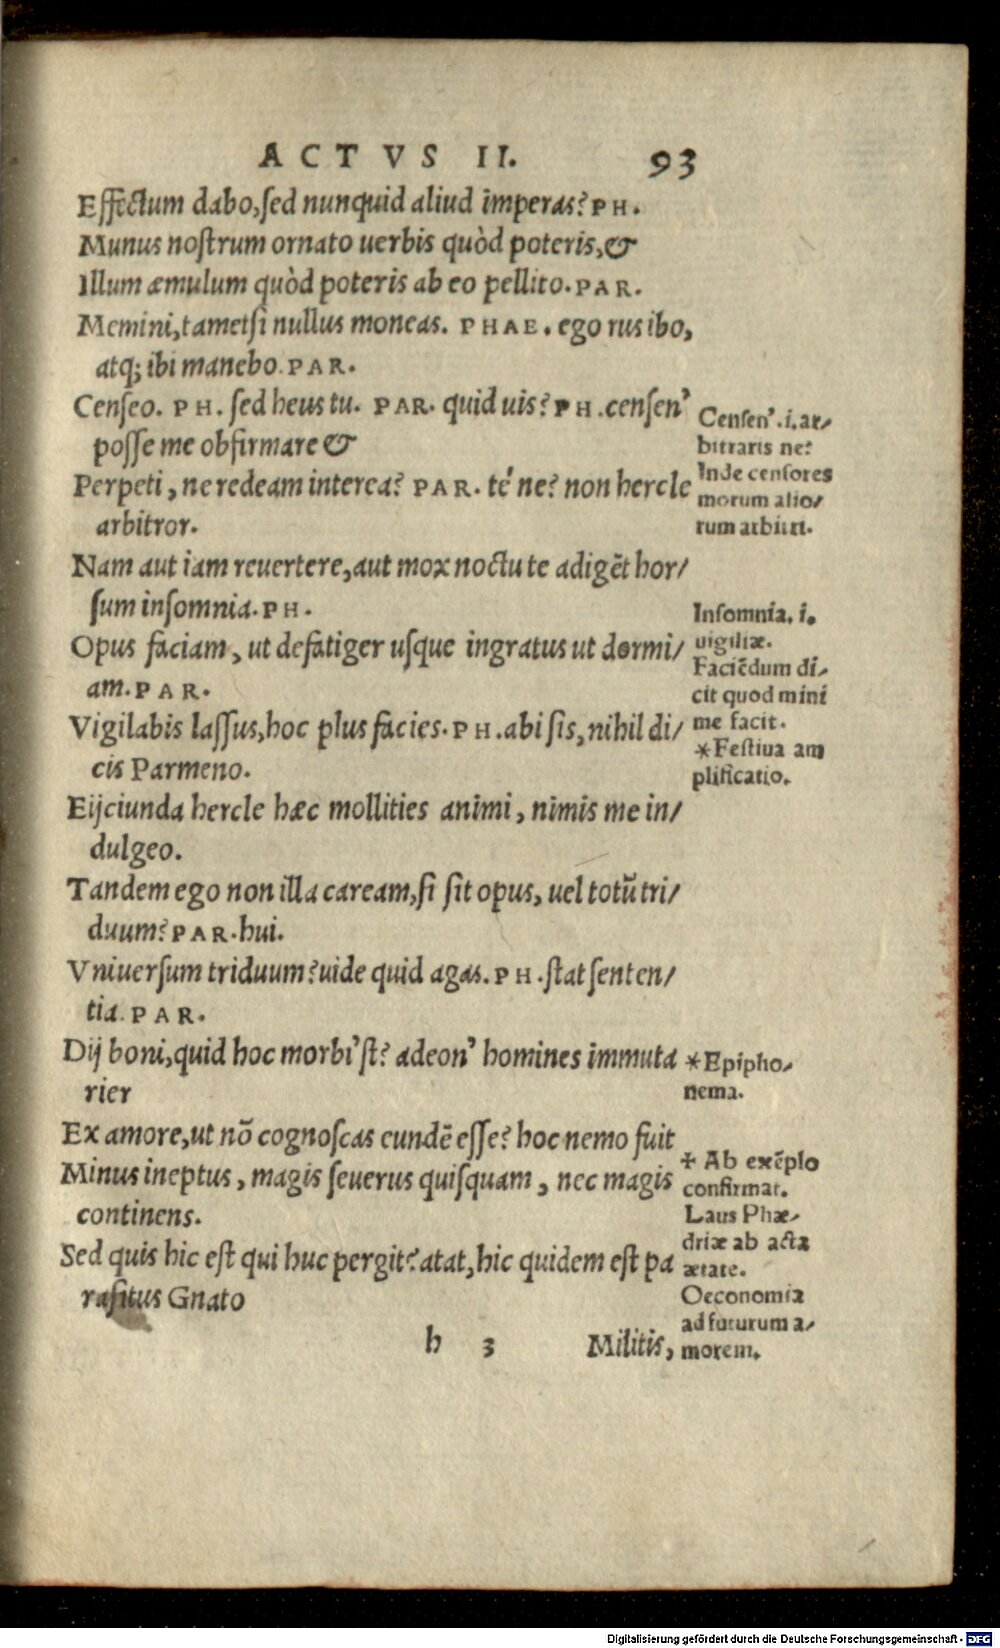 ACTVS II. 93
Effectum dabo, sed nunquid aliud imperas? PH.
Munus nostrum ornato uerbis quòd poteris, &
Illum æmulum quòd poteris ab eo pellito. PAR.
Memini, tametsi nullus moneas. PHAE. ego rus ibo,
atq; ibi manebo. PAR.
Censeo. PH. sed heus tu. PAR. quid uis? PH. censen'
posse me obfirmare &
Perpeti, ne redeam interea? PAR. té ne? non hercle
arbitror.
Nam aut iam reuertere, aut mox noctu te adigẽt hor/
sum insomnia. PH.
Opus faciam, ut defatiger usque ingratus ut dormi/
am. PAR.
Vigilabis lassus, hoc plus facies. PH. abi sis, nihil di/
cis Parmeno.
Eijciunda hercle hæc mollities animi, nimis me in/
dulgeo.
Tandem ego non illa caream, si sit opus, uel totũ tri/
duum? PAR. hui.
Vniuersum triduum? uide quid agas. PH. stat senten/
tia. PAR.
Dij boni, quid hoc morbi'st? adeon' homines immuta
rier
Ex amore, ut nõ cognoscas eundẽ esse? hoc nemo fuit
Minus ineptus, magis seuerus quisquam, nec magis
continens.
Sed quis hic est qui huc pergit? atat, hic quidem est pa
rasitus Gnato
h 3 Militis,
Censen'.i. ar/
bitraris ne?
Inde censores
morum alio/
rum arbitri.
Insomnia. i.
uigiliæ.
Faciẽdum di/
cit quod mini
me facit.
*Festiua am
plificatio.
*Epipho/
nema.
+ Ab exẽplo
confirmat.
Laus Phæ/
driæ ab acta
ætate.
Oeconomia
ad futurum a/
morem.
Digitalisierung gefördert durch die Deutsche Forschungsgemeinschaft - DFG